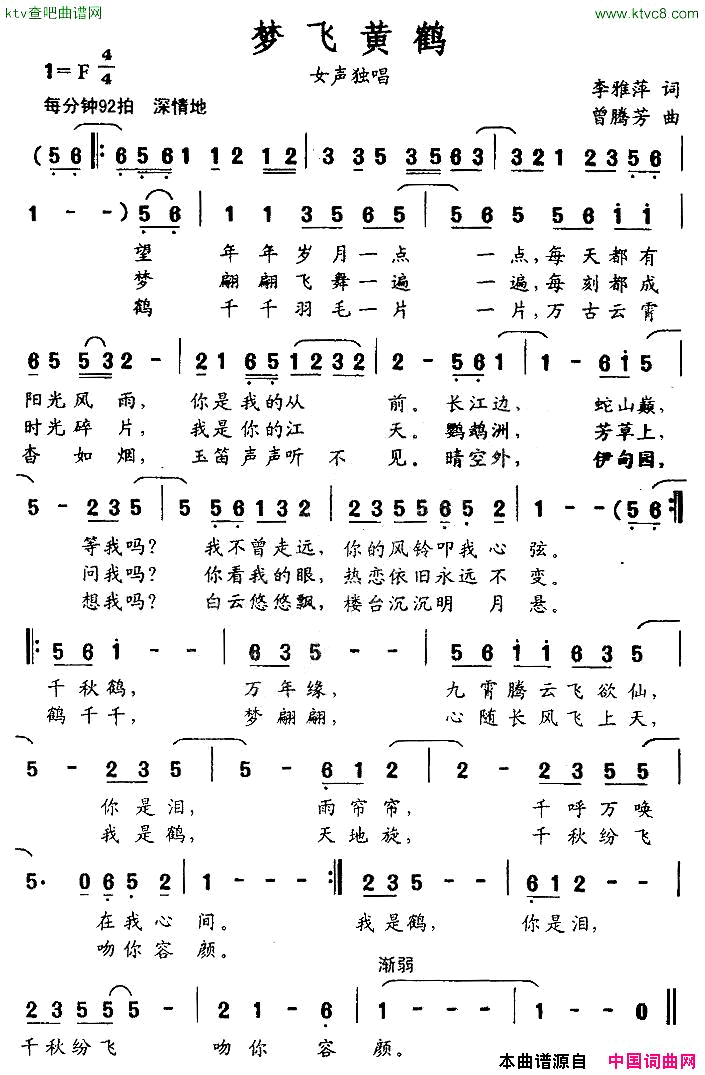 ktv查吧曲谱网
www.ktvc8.com
梦飞黄鹤
1=F 4/4
女声独唱
李雅萍 词
每分钟92拍 深情地
曾腾芳 曲
(5 6 ‖: 6 5 6 1 1 2 1 2 | 3 3 5 3 5 6 3 | 3 2 1 2 3 5 6 |
1 - - ) 5 6 | 1 1 3 5 6 5 | 5 - 5 6 i i |
望 年年岁月一点 一点,每天都有
梦 翩翩飞舞一遍 一遍,每刻都成
鹤 千千羽毛一片 一片,万古云霄
6 5 5 3 2 - | 2 1 6 5 1 2 3 2 | 2 - 5 6 1 | 1 - 6 i 5 |
阳光风雨, 你是我的从 前。长江边, 蛇山巅,
时光碎片, 我是你的江 天。鹦鹉洲, 芳草上,
杳如烟, 玉笛声声听不 见。晴空外, 伊甸园,
5 - 2 3 5 | 5 5 6 1 3 2 | 2 3 5 5 6 5 2 | 1 - - (5 6 :‖
等我吗? 我不曾走远, 你的风铃叩我心弦。
问我吗? 你看我的眼, 热恋依旧永远不变。
想我吗? 白云悠悠飘, 楼台沉沉明月悬。
‖: 5 6 i - | 6 3 5 - - | 5 6 i i 6 3 5 |
千秋鹤, 万年缘, 九霄腾云飞欲仙,
鹤千千, 梦翩翩, 心随长风飞上天,
5 - 2 3 5 | 5 - 6 1 2 | 2 - 2 3 5 5 |
你是泪, 雨帘帘, 千呼万唤
我是鹤, 天地旋, 千秋纷飞
5· 0 6 5 2 | 1 - - - :‖ 2 3 5 - - | 6 1 2 - - |
在我心间。 我是鹤, 你是泪,
吻你容颜。
渐弱
2 3 5 5 5 - | 2 1 - 6 | 1 - - - | 1 - - 0 ‖
千秋纷飞 吻你容颜。
本曲谱源自 中国词曲网